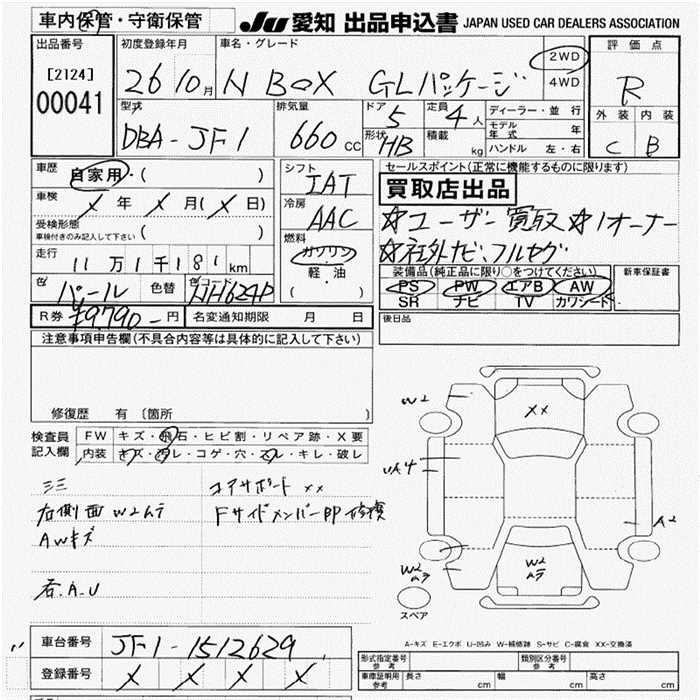 車内保管・守衛保管
JU 愛知 出品申込書 JAPAN USED CAR DEALERS ASSOCIATION
出品番号
[2124]
00041
初度登録年月
26 10月
車名・グレード
N BOX GLパッケージ
2WD
4WD
評価点
R
外装 内装
C B
型式
DBA-JF1
排気量
660 CC
ドア 5
定員 4人
形状 HB
積載 kg
ディーラー・並行
モデル年式 年
ハンドル 左・右
車歴
自家用・( )
車検
X 年 X 月( X 日)
受検形態
車検付きのみ記入して下さい ( )
走行
11万1千181km
色 パール 色替 色コード NH624P
シフト
IAT
冷房
AAC
燃料
ガソリン
軽・油
( )
セールスポイント(正常に機能するものに限ります)
買取店出品
☆ユーザー買取☆1オーナー
☆社外ナビ、フルセグ
装備品(純正品に限り○をつけてください)
PS PW エアB AW
SR ナビ TV カワシート
新車保証書
R券 ¥9,790-円 名変通知期限 月 日
後日品
注意事項申告欄(不具合内容等は具体的に記入して下さい)
修復歴 有〔箇所 〕
検査員記入欄
FW キズ・飛石・ヒビ割・リペア跡・X要
内装 キズ・汚レ・コゲ・穴・スレ・キレ・破レ
三三
コアサポート XX
右側面 W2ムラ
Fサイドメンバー即修復
AWキズ
右.A.U
W2
XX
UA4
A2
W2
ムラ
W2
ムラ
スペア
A-キズ E-エクボ U-凹み W-補修跡 S-サビ C-腐食 XX-交換済
車台番号 JF1-1512629
登録番号 X X X X
形式指定番号
参考
類別区分番号
参考
車庫証明
参考
長さ cm 幅 cm 高さ cm